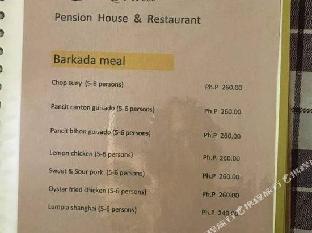 Pension House & Restaurant
Barkada meal
Chop suey (5-6 persons) Ph.P 260.00
Pancit canton guisado (5-6 persons) Ph.P 260.00
Pancit bihon guisado (5-6 persons) Ph.P 260.00
Lemon chicken (5-6 persons) Ph.P 260.00
Sweet & Sour pork (5-6 persons) Ph.P 260.00
Oyster fried chicken (5-6 persons) Ph.P 260.00
Lumpia shanghai (5-6 persons) Ph.P 240.00